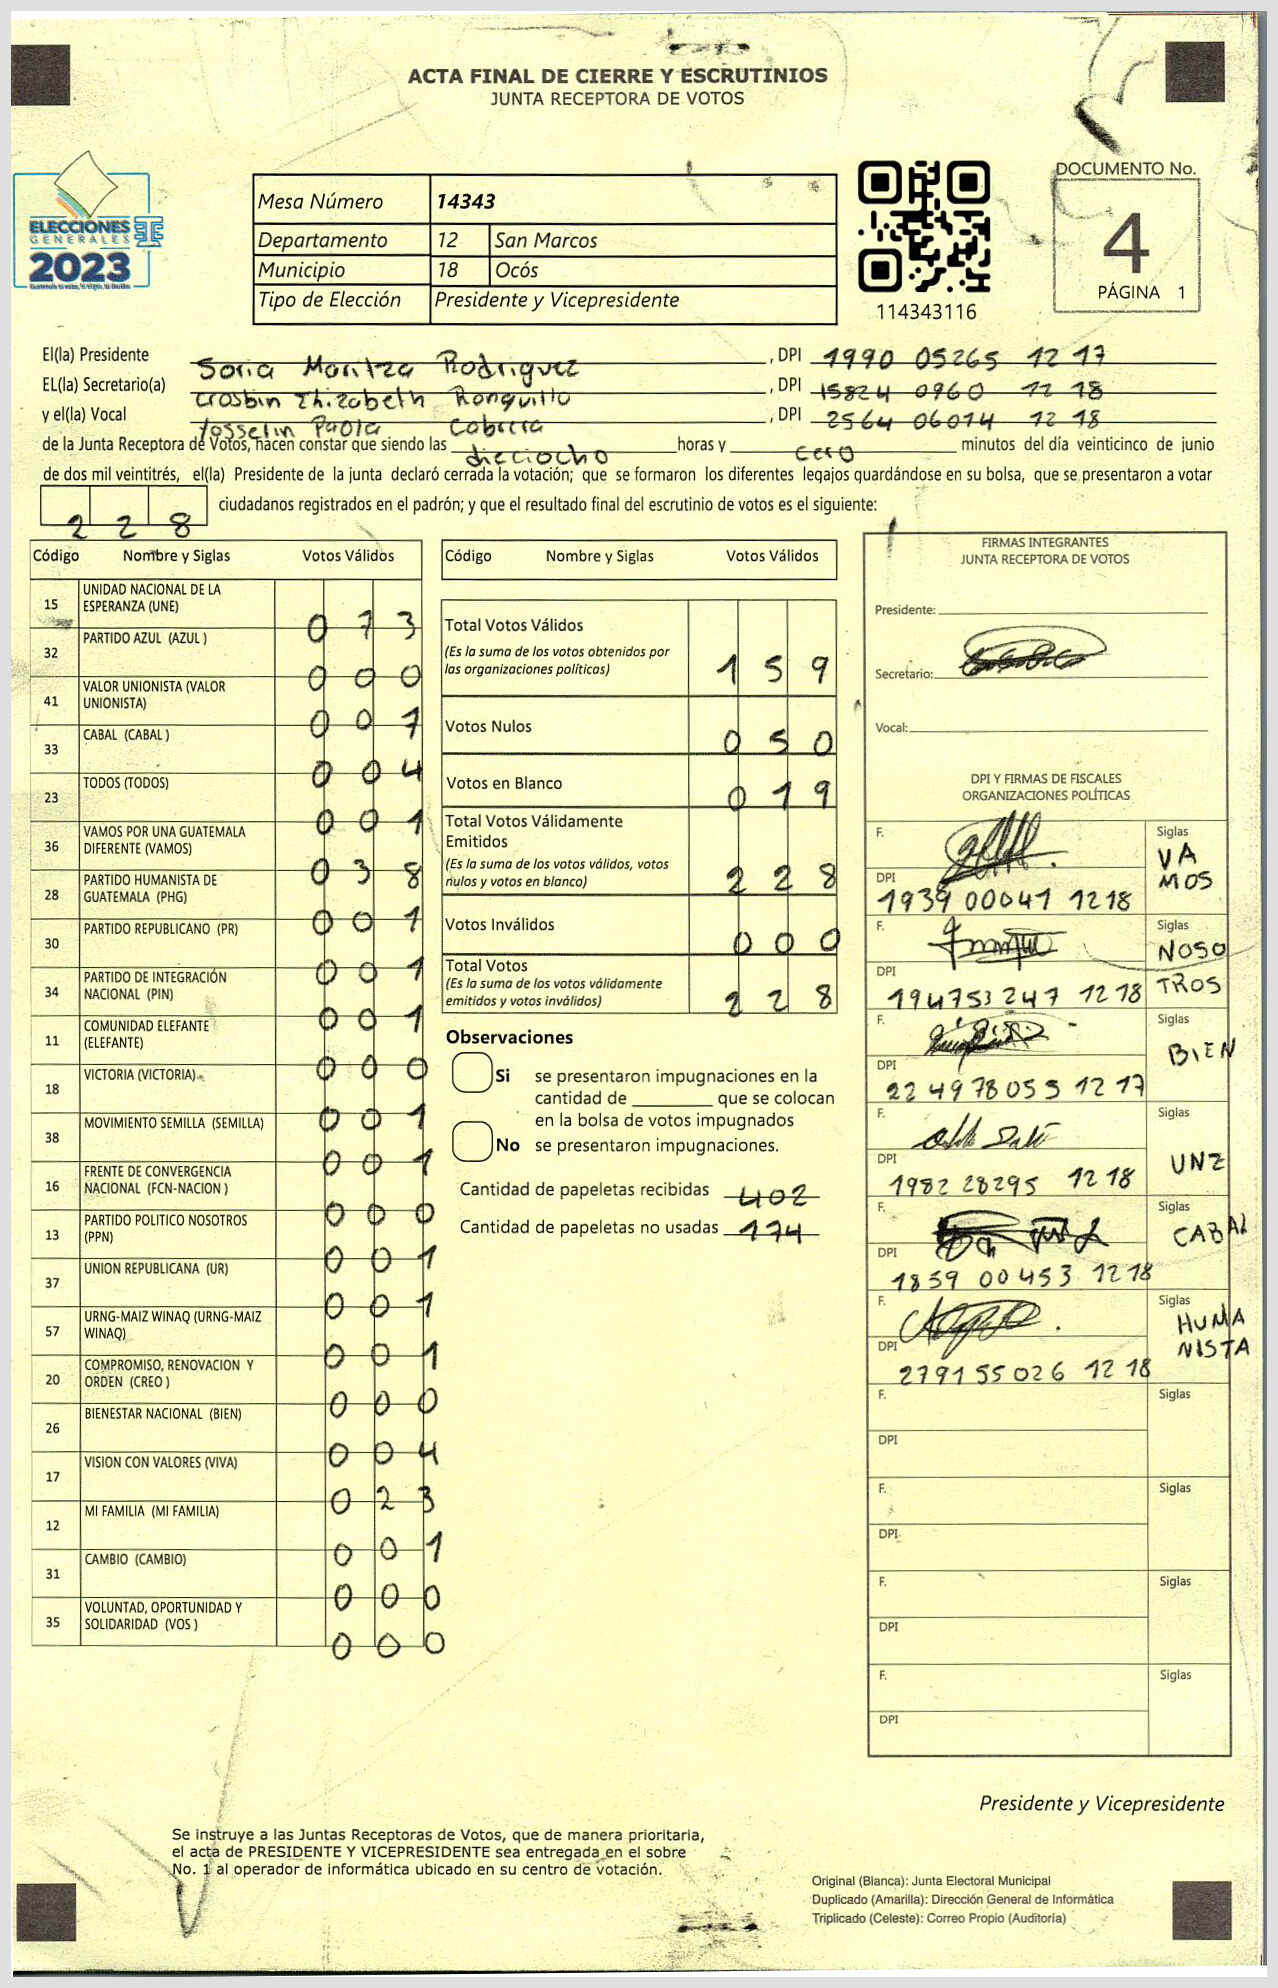 ACTA FINAL DE CIERRE Y ESCRUTINIOS
JUNTA RECEPTORA DE VOTOS
ELECCIONES
GENERALES
2023
Mesa Número 14343
Departamento 12 San Marcos
Municipio 18 Ocós
Tipo de Elección Presidente y Vicepresidente
114343116
DOCUMENTO No.
4
PÁGINA 1
El(la) Presidente Soria Maritza Rodriguez , DPI 1990 05265 12 17
EL(la) Secretario(a) Crosbin Elizabeth Ronquillo , DPI 15824 0960 12 18
y el(la) Vocal Yosselin Paola Cabrera , DPI 2564 06014 12 18
de la Junta Receptora de Votos, hacen constar que siendo las dieciocho horas y cero minutos del día veinticinco de junio
de dos mil veintitrés, el(la) Presidente de la junta declaró cerrada la votación; que se formaron los diferentes legajos guardándose en su bolsa, que se presentaron a votar
2 2 8 ciudadanos registrados en el padrón; y que el resultado final del escrutinio de votos es el siguiente:
Código Nombre y Siglas Votos Válidos
15 UNIDAD NACIONAL DE LA ESPERANZA (UNE) 0 7 3
32 PARTIDO AZUL (AZUL ) 0 0 0
41 VALOR UNIONISTA (VALOR UNIONISTA) 0 0 7
33 CABAL (CABAL ) 0 0 4
23 TODOS (TODOS) 0 0 1
36 VAMOS POR UNA GUATEMALA DIFERENTE (VAMOS) 0 3 8
28 PARTIDO HUMANISTA DE GUATEMALA (PHG) 0 0 1
30 PARTIDO REPUBLICANO (PR) 0 0 1
34 PARTIDO DE INTEGRACIÓN NACIONAL (PIN) 0 0 1
11 COMUNIDAD ELEFANTE (ELEFANTE) 0 0 0
18 VICTORIA (VICTORIA) 0 0 1
38 MOVIMIENTO SEMILLA (SEMILLA) 0 0 1
16 FRENTE DE CONVERGENCIA NACIONAL (FCN-NACION ) 0 0 0
13 PARTIDO POLITICO NOSOTROS (PPN) 0 0 1
37 UNION REPUBLICANA (UR) 0 0 1
57 URNG-MAIZ WINAQ (URNG-MAIZ WINAQ) 0 0 1
20 COMPROMISO, RENOVACION Y ORDEN (CREO ) 0 0 0
26 BIENESTAR NACIONAL (BIEN) 0 0 4
17 VISION CON VALORES (VIVA) 0 2 3
12 MI FAMILIA (MI FAMILIA) 0 0 1
31 CAMBIO (CAMBIO) 0 0 0
35 VOLUNTAD, OPORTUNIDAD Y SOLIDARIDAD (VOS ) 0 0 0
Código Nombre y Siglas Votos Válidos
Total Votos Válidos 1 5 9
(Es la suma de los votos obtenidos por
las organizaciones políticas)
Votos Nulos 0 5 0
Votos en Blanco 0 1 9
Total Votos Válidamente
Emitidos
(Es la suma de los votos válidos, votos
nulos y votos en blanco) 2 2 8
Votos Inválidos 0 0 0
Total Votos
(Es la suma de los votos válidamente
emitidos y votos inválidos) 2 2 8
Observaciones
Si se presentaron impugnaciones en la
cantidad de ________ que se colocan
en la bolsa de votos impugnados
No se presentaron impugnaciones.
Cantidad de papeletas recibidas 402
Cantidad de papeletas no usadas 174
FIRMAS INTEGRANTES
JUNTA RECEPTORA DE VOTOS
Presidente:
Secretario:
Vocal:
DPI Y FIRMAS DE FISCALES
ORGANIZACIONES POLÍTICAS
F. Siglas VA MOS
DPI 1939 00041 1218
F. Siglas NOSO TROS
DPI 194753247 1218
F. Siglas BIEN
DPI 224978055 1217
F. Siglas UNE
DPI 1982 28295 1218
F. Siglas CABAL
DPI 1859 00453 1218
F. Siglas HUMA NISTA
DPI 2791 55026 1218
F. Siglas
DPI
F. Siglas
DPI
F. Siglas
DPI
F. Siglas
DPI
Presidente y Vicepresidente
Se instruye a las Juntas Receptoras de Votos, que de manera prioritaria,
el acta de PRESIDENTE Y VICEPRESIDENTE sea entregada en el sobre
No. 1 al operador de informática ubicado en su centro de votación.
Original (Blanca): Junta Electoral Municipal
Duplicado (Amarilla): Dirección General de Informática
Triplicado (Celeste): Correo Propio (Auditoría)